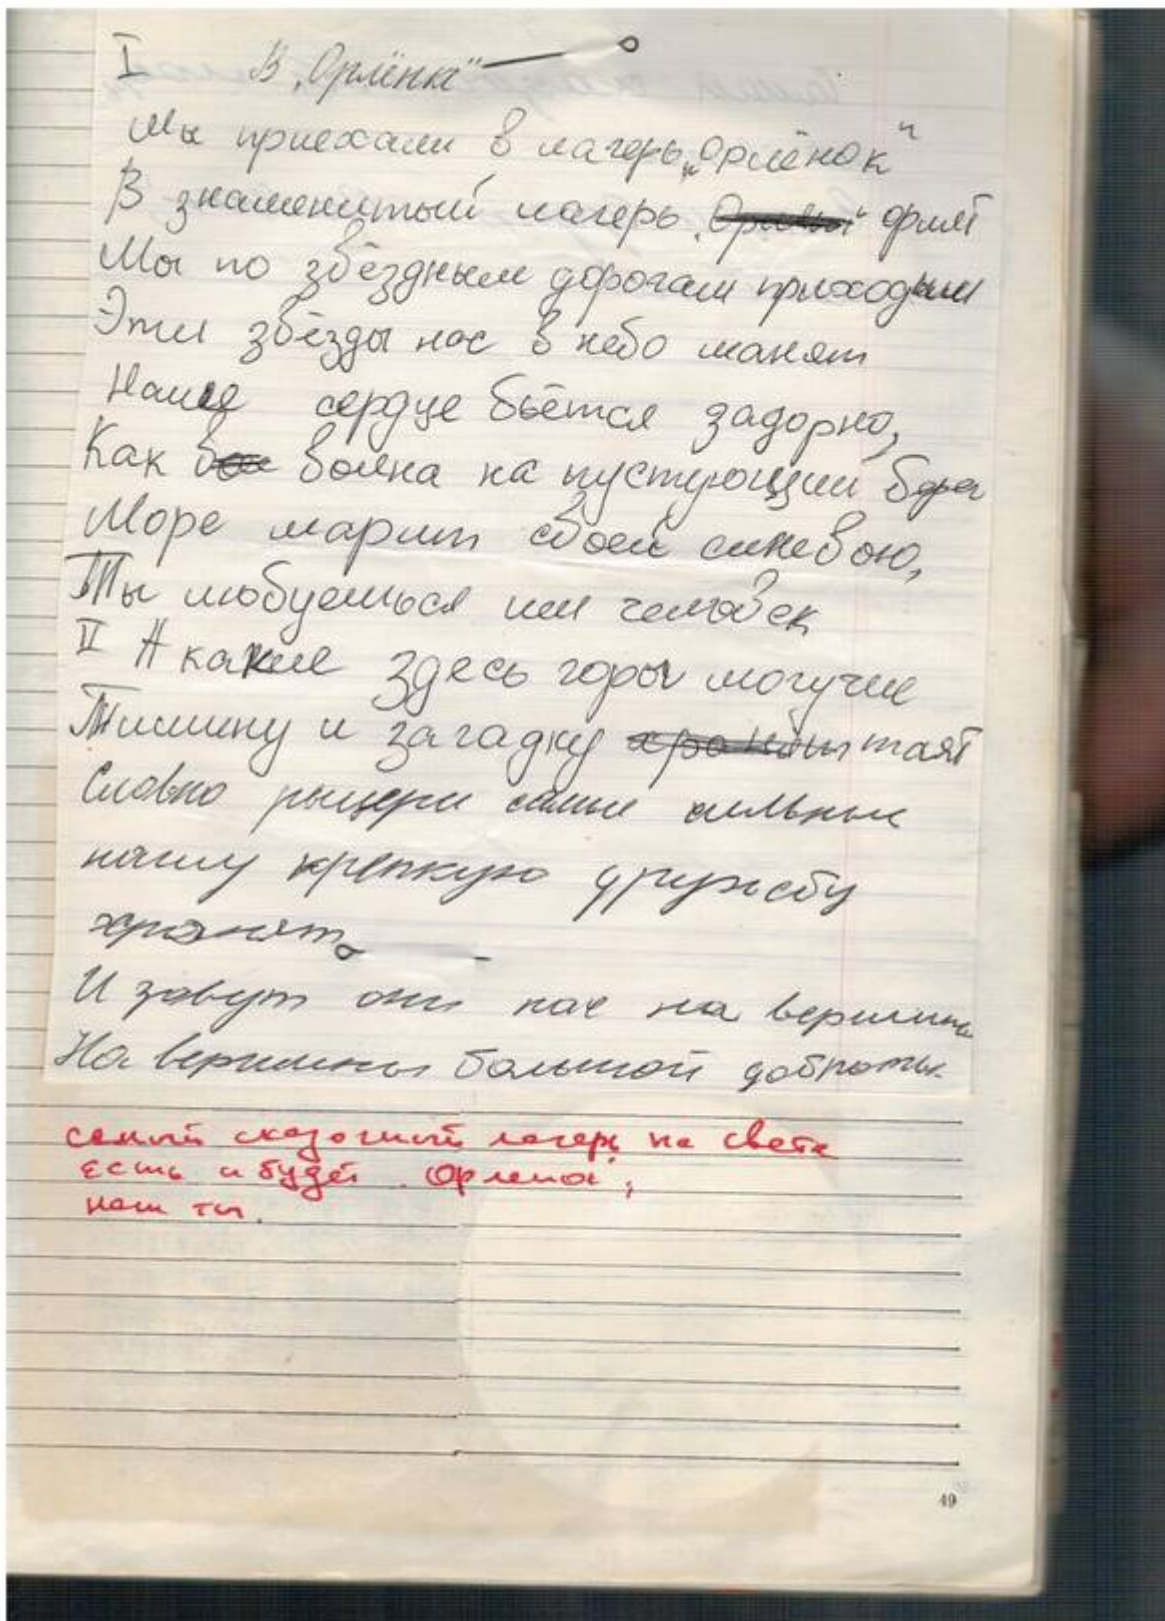 I В „Орлёнке"
Мы приехали в лагерь „Орлёнок"
В знаменитый лагерь
Мы по звёздным дорогам приходим
Эти звёзды нас в небо манят
Наше сердце бьётся задорно,
Как волна на пустующий берег
Море марит своей синевою,
Ты любуешься им человек
II А какие здесь горы могучие
Тишину и загадку таят
Словно рыцери самые сильные
нашу крепкую дружбу
хранят.
И зовут они нас на вершины
На вершины большой доброты.
самый сказочный лагерь на свете
есть и будет Орленок,
наш ты.
49